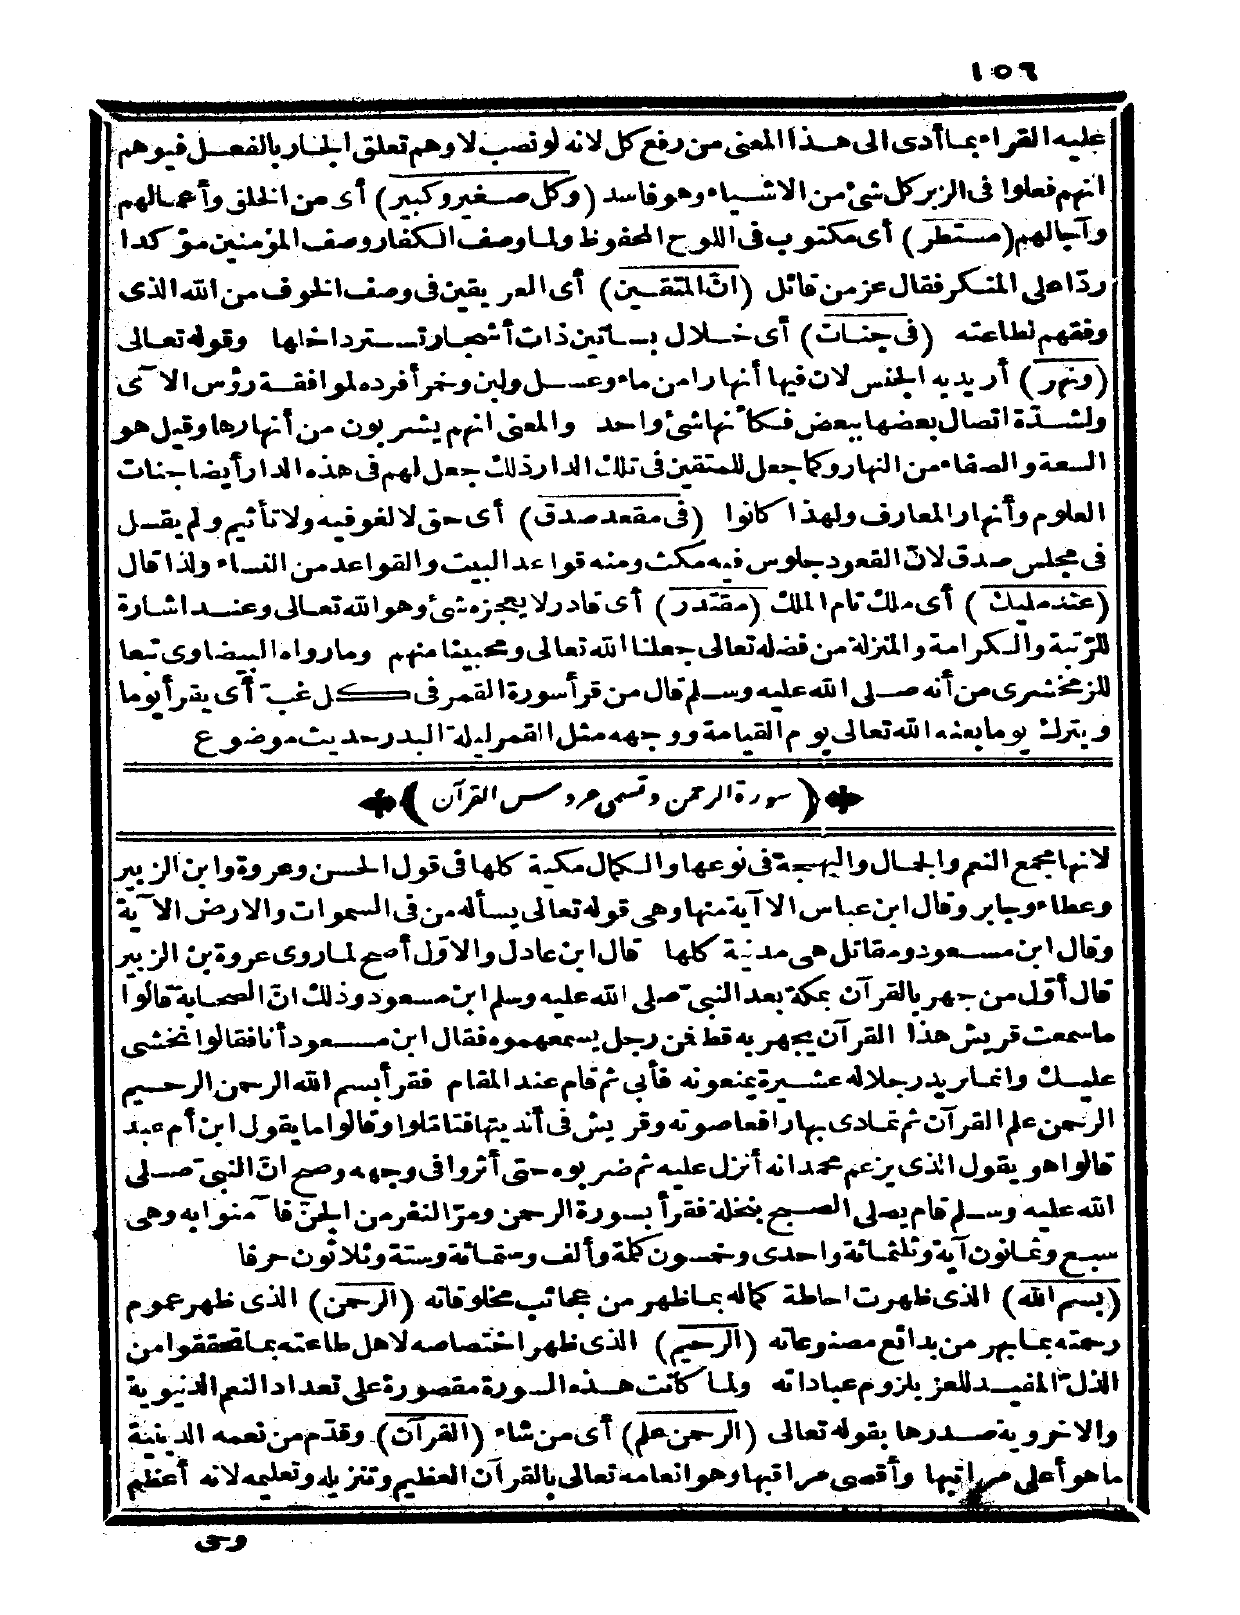 ١٥٦
عليه القراء بما أدى الى هذا المعنى من رفع كل لانه لو نصب لاوهم تعلق الجار بالفعل فيوهم
انهم فعلوا فى الزبر كل شئ من الاشياء وهو فاسد (وكل صغير وكبير) أى من الخلق وأعمالهم
وآجالهم (مستطر) أى مكتوب فى اللوح المحفوظ ولما وصف الكفار وصف المؤمنين مؤكدا
ردّا على المنكر فقال عز من قائل (انّ المتقين) أى العريقين فى وصف الخوف من الله الذى
وفقهم لطاعته (فى جنات) أى خلال بساتين ذات أشجار تستر داخلها وقوله تعالى
(ونهر) أريد به الجنس لان فيها أنهارا من ماء وعسل ولبن وخمر أفرده لموافقة رؤس الآى
ولشدّة اتصال بعضها ببعض فكأنها شئ واحد والمعنى انهم يشربون من أنهارها وقيل هو
السعة والصفاء من النهار وكما جعل للمتقين فى تلك الدار ذلك جعل لهم فى هذه الدار أيضا جنات
العلوم وأنهار المعارف ولهذا كانوا (فى مقعد صدق) أى حق لا لغو فيه ولا تأثيم ولم يقل
فى مجلس صدق لانّ القعود جلوس فيه مكث ومنه قواعد البيت والقواعد من النساء ولذا قال
(عند مليك) أى ملك تام الملك (مقتدر) أى قادر لا يعجزه شئ وهو الله تعالى وعند اشارة
للرّتبة والكرامة والمنزلة من فضله تعالى جعلنا الله تعالى ومحبينا منهم وما رواه البيضاوى تبعا
للزمخشرى من أنه صلى الله عليه وسلم قال من قرأ سورة القمر فى كل غبّ أى يقرأ يوما
ويترك يوما بعثه الله تعالى يوم القيامة ووجهه مثل القمر ليلة البدر حديث موضوع
(سورة الرحمن وتسمى عروس القرآن)
لانها مجمع النعم والجمال والبهجة فى نوعها والكمال مكية كلها فى قول الحسن وعروة وابن الزبير
وعطاء وجابر وقال ابن عباس الا آية منها وهى قوله تعالى يسأله من فى السموات والارض الآية
وقال ابن مسعود ومقاتل هى مدنية كلها قال ابن عادل والاوّل أصح لما روى عروة بن الزبير
قال أوّل من جهر بالقرآن بمكة بعد النبىّ صلى الله عليه وسلم ابن مسعود وذلك انّ الصحابة قالوا
ما سمعت قريش هذا القرآن يجهر به قط فمن رجل يسمعهموه فقال ابن مسعود أنا فقالوا نخشى
عليك وانما نريد رجلا له عشيرة يمنعونه فأبى ثم قام عند المقام فقرأ بسم الله الرحمن الرحيم
الرحمن علم القرآن ثم تمادى بها رافعا صوته وقريش فى أنديتها فتاملوا وقالوا ما يقول ابن أم عبد
قالوا هو يقول الذى يزعم محمد انه أنزل عليه ثم ضربوه حتى أثروا فى وجهه وصح انّ النبىّ صلى
الله عليه وسلم قام يصلى الصبح بنخلة فقرأ بسورة الرحمن ومرّ النفر من الجنّ فآمنوا به وهى
سبع وثمانون آية وثلثمائة واحدى وخمسون كلمة وألف وستمائة وستة وثلاثون حرفا
(بسم الله) الذى ظهرت احاطة كماله بما ظهر من عجائب مخلوقاته (الرحمن) الذى ظهر عموم
رحمته بما بهر من بدائع مصنوعاته (الرحيم) الذى ظهر اختصاصه لاهل طاعته بما تحققوا من
الذلّ المفيد للعز بلزوم عباداته ولما كانت هذه السورة مقصورة على تعداد النعم الدنيوية
والاخروية صدرها بقوله تعالى (الرحمن علم) أى من شاء (القرآن) وقدّم من نعمه الدينية
ما هو أعلى مراتبها وأقصى مراقبها وهو انعامه تعالى بالقرآن العظيم وتنزيله وتعليمه لانه أعظم
وحى